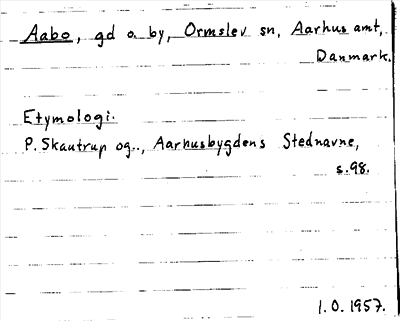 Aabo, gd o. by, Ormslev sn, Aarhus amt,
Danmark.
Etymologi.
P. Skautrup og.., Aarhusbygdens Stednavne,
s.98.
1.O.1957.